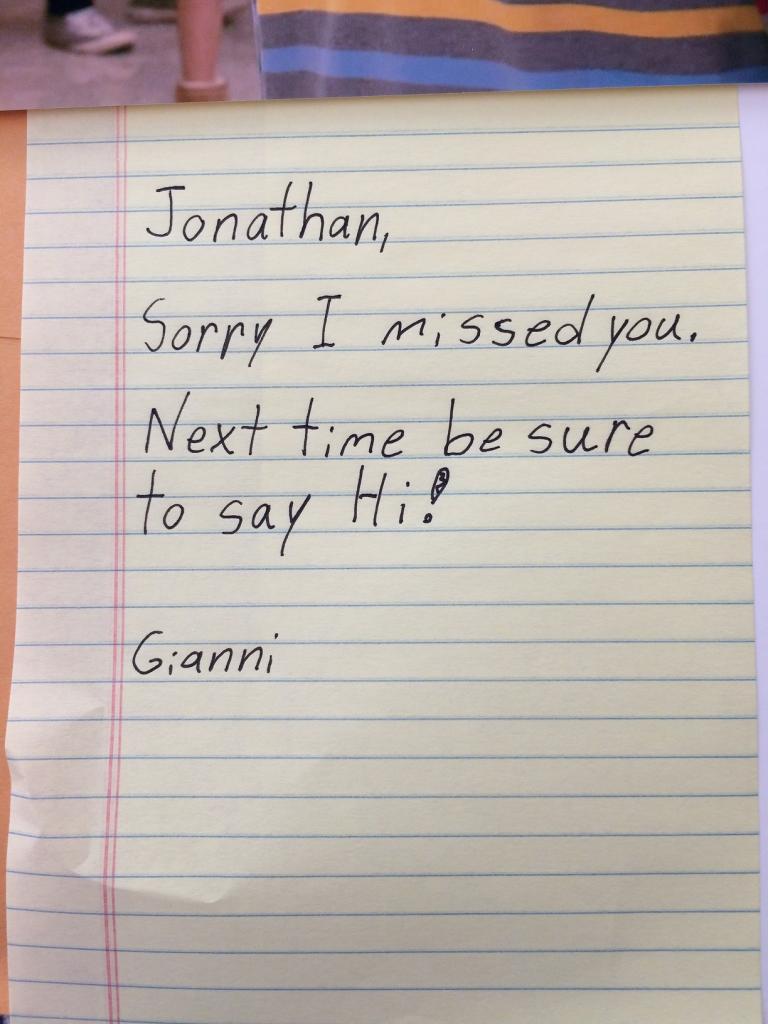 Jonathan,
Sorry I missed you.
Next time be sure
to say Hi!
Gianni